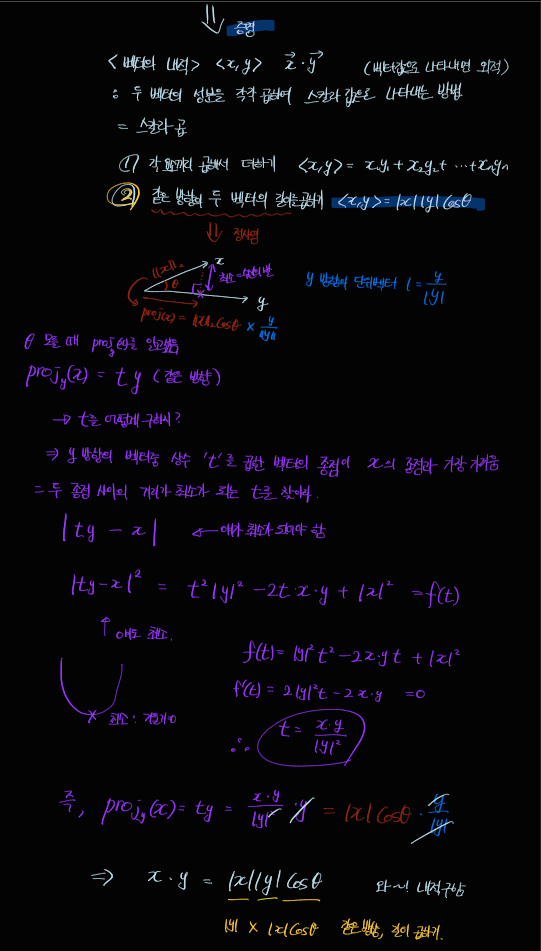 ⇓ 증명
<벡터의 내적> <x,y> x⃗·y⃗ (벡터값으로 나타내면 외적)
: 두 벡터의 성분을 각각 곱하여 스칼라 값으로 나타내는 방법
= 스칼라 곱
① 각 요소끼리 곱해서 더하기 <x,y> = x₁y₁ + x₂y₂ + … + xₙyₙ
② 같은 방향의 두 벡터의 길이를 곱하기 <x,y> = |x||y|cosθ
⇓ 정사영
x
||x||₂
θ
최소 = 수선의 발
y
y 방향의 단위벡터 l = y/|y|
proj(x) = ||x||₂cosθ × y/||y||
θ 모를 때 proj_y(x)를 안고싶음
proj_y(x) = t y (같은 방향)
→ t를 어떻게 구하지?
⇒ y 방향의 벡터중 상수 't'를 곱한 벡터의 종점이 x의 종점과 가장 가까움
= 두 종점 사이의 거리가 최소가 되는 t를 찾아라.
|ty - x| ← 얘가 최소가 되어야 함
|ty-x|² = t²|y|² - 2t·x·y + |x|² = f(t)
↑ 얘도 최소.
f(t) = |y|²t² - 2x·y t + |x|²
f'(t) = 2|y|²t - 2x·y = 0
최소 : 기울기=0
∴ t = x·y/|y|²
즉, proj_y(x) = ty = x·y/|y|² · y = |x|cosθ · y/|y|
⇒ x·y = |x||y|cosθ 와~! 내적구함
|y| × |x|cosθ 같은방향, 길이 곱하기.